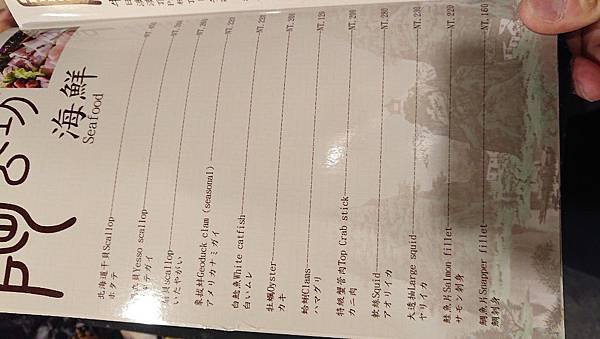 海鮮
Seafood
北海道干貝Scallop
ホタテ
貝Yesso scallop
テガイ
scallop
いたやがい
象拔蚌Geoduck clam (seasonal)
アメリカナミガイ
NT. 220
白鯰魚White catfish
白いムレ
NT. 220
牡蠣Oyster
カキ
NT. 200
蛤蜊Clams
ハマグリ
NT. 120
特級蟹管肉Top Crab stick
カニ肉
NT. 200
軟絲Squid
アオリイカ
NT. 280
大透抽Large squid
ヤリイカ
NT. 230
鮭魚片Salmon fillet
サモン刺身
NT. 220
鯛魚片Snapper fillet
鯛刺身
NT. 160